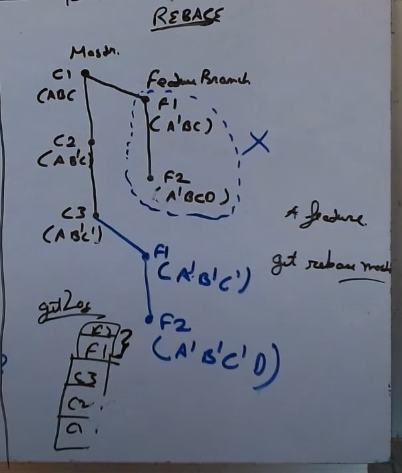 REBASE
Master.
C1
(ABC
Feature Branch
F1
(A'BC)
C2
(AB'C)
F2
(A'BCD)
X
C3
(AB'C')
F1
(A'B'C')
F2
(A'B'C'D)
A feature.
git rebase
git log
F2
F1
C3
C2
C1